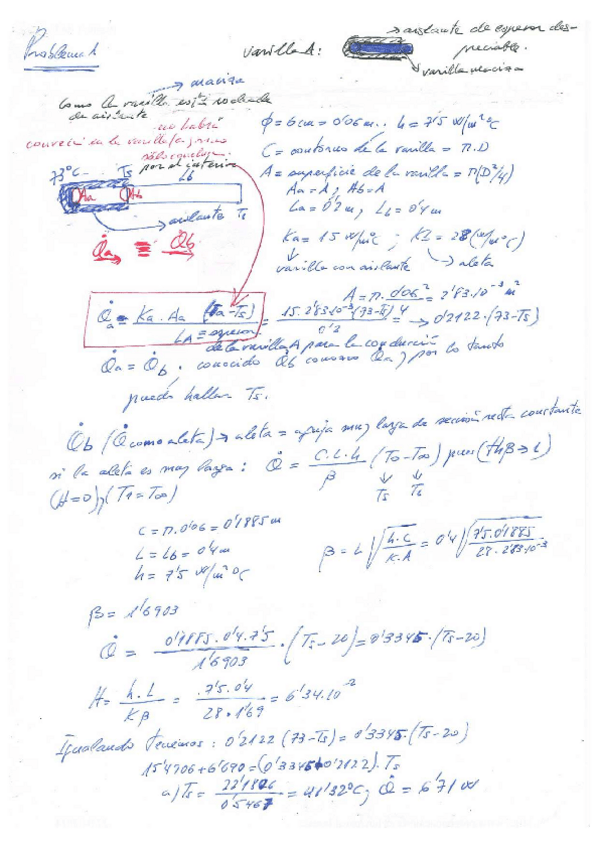 Problema 1
varilla A:
→ aislante de espesor des-
preciable.
→ varilla maciza
→ maciza
como la varilla está rodeada
de aislante
no habrá
convección en la varilla
por el interior
φ = 6cm = 0'06 m. h = 7'5 W/m²ºC
C = contorno de la varilla = π.D
A = superficie de la varilla = π(D²/4)
Aa = A, Ab = A
La = 0'2 m, Lb = 0'4 m
Ka = 15 W/mºC ; Kb = 28 (W/mºC)
varilla con aislante → aleta
73ºC Ts Lb
Aa Ab
→ aislante Ts
Q̇a ≡ Q̇b
A = π.0'06²/4 = 2'83.10⁻³ m²
Q̇a = Ka.Aa (Ta-Ts)/LA = 15.2'83.10⁻³(73-Ts)/0'2 → 0'2122.(73-Ts)
LA = espesor
de la varilla A para la conducción
Q̇a = Q̇b. conocido Q̇b conozco Q̇a, por lo tanto
puedo hallar Ts.
Q̇b (Q̇ como aleta) → aleta = aguja muy larga de sección recta constante
si la aleta es muy larga: Q̇ = C.L.h/β (To-T∞) pues (thβ→1)
(H=0), (T1=T∞)
Ts
C = π.0'06 = 0'1885 m
L = Lb = 0'4 m
h = 7'5 W/m²ºC
β = L √(h.C/K.A) = 0'4 √(7'5.0'1885/28.2'83.10⁻³)
β = 1'6903
Q̇ = 0'1885.0'4.7'5/1'6903 . (Ts-20) = 0'3345.(Ts-20)
H = h.L/Kβ = 7'5.0'4/28.1'69 = 6'34.10⁻²
Igualando tenemos: 0'2122 (73-Ts) = 0'3345.(Ts-20)
15'4906 + 6'690 = (0'3345+0'2122).Ts
a) Ts = 22'1806/0'5467 = 41'32ºC; Q̇ = 6'71 W